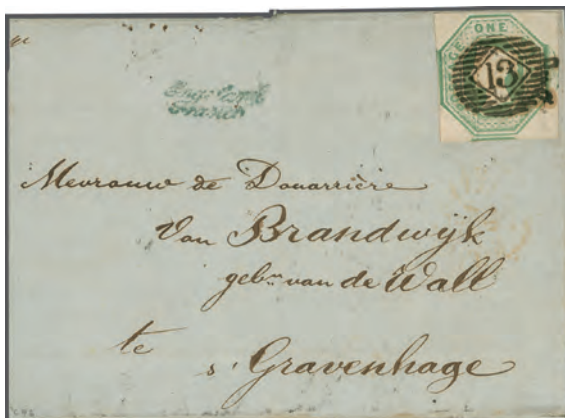 GE ONE
13
Franco
Mevrouw de Douarrière
Van Brandwijk
gebn van de Wall
te
s'Gravenhage